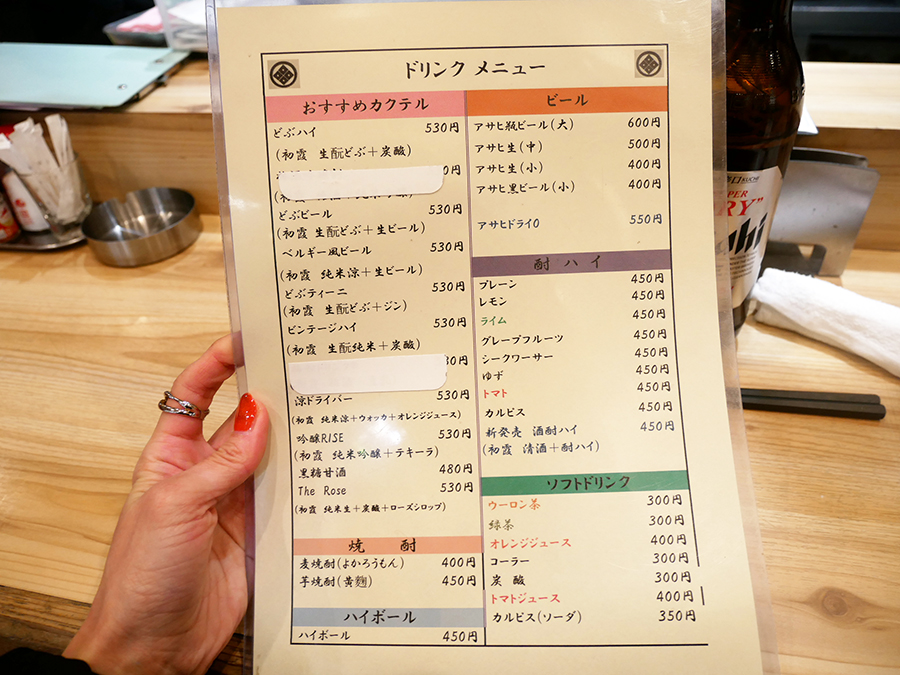 ドリンク メニュー
おすすめカクテル
どぶハイ 530円
(初霞 生酛どぶ＋炭酸)
0円
どぶビール 530円
(初霞 生酛どぶ＋生ビール)
ベルギー風ビール 530円
(初霞 純米涼＋生ビール)
どぶティーニ 530円
(初霞 生酛どぶ＋ジン)
ビンテージハイ 530円
(初霞 生酛純米＋炭酸)
30円
涼ドライバー 530円
(初霞 純米涼＋ウォッカ＋オレンジジュース)
吟醸RISE 530円
(初霞 純米吟醸＋テキーラ)
黒糖甘酒 480円
The Rose 530円
(初霞 純米生＋炭酸＋ローズシロップ)
焼 酎
麦焼酎(よかろうもん) 400円
芋焼酎(黄麹) 450円
ハイボール
ハイボール 450円
ビール
アサヒ瓶ビール(大) 600円
アサヒ生(中) 500円
アサヒ生(小) 400円
アサヒ黒ビール(小) 400円
アサヒドライ0 550円
酎 ハ イ
プレーン 450円
レモン 450円
ライム 450円
グレープフルーツ 450円
シークワーサー 450円
ゆず 450円
トマト 450円
カルピス 450円
新発売 酒酎ハイ 450円
(初霞 清酒＋酎ハイ)
ソフトドリンク
ウーロン茶 300円
緑茶 300円
オレンジジュース 400円
コーラー 300円
炭 酸 300円
トマトジュース 400円
カルピス(ソーダ) 350円